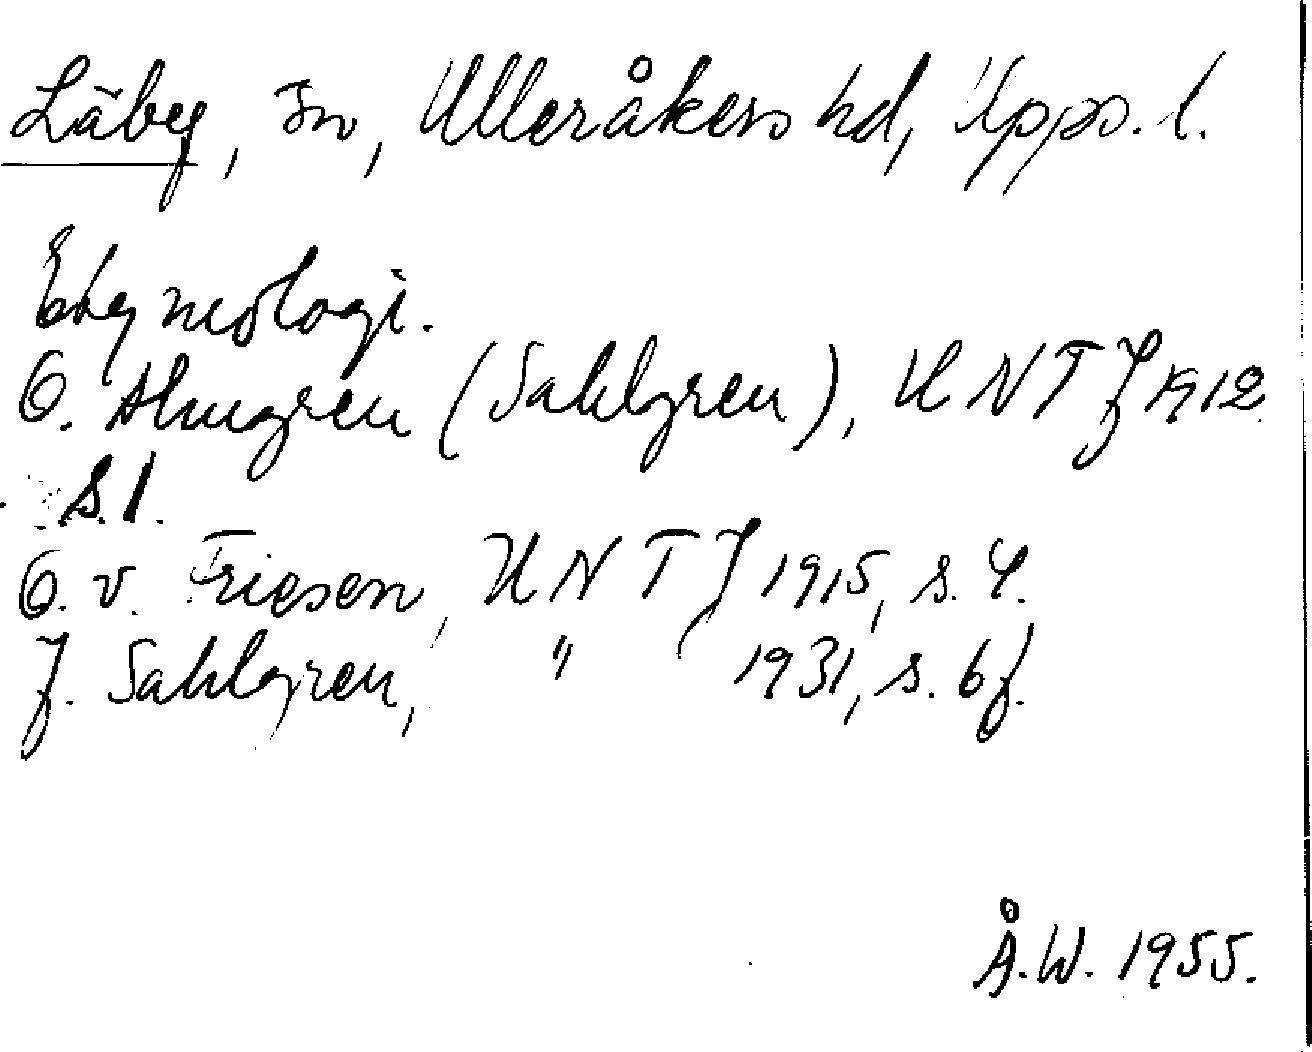 Läby, sn, Ulleråkers hd, Upps. l.
Etymologi.
O. Almgren (Sahlgren), UNTJ 1912
s. 1.
O. v. Friesen, UNTJ 1915, s. 4.
J. Sahlgren, " 1931, s. 6f.
Å.W. 1955.